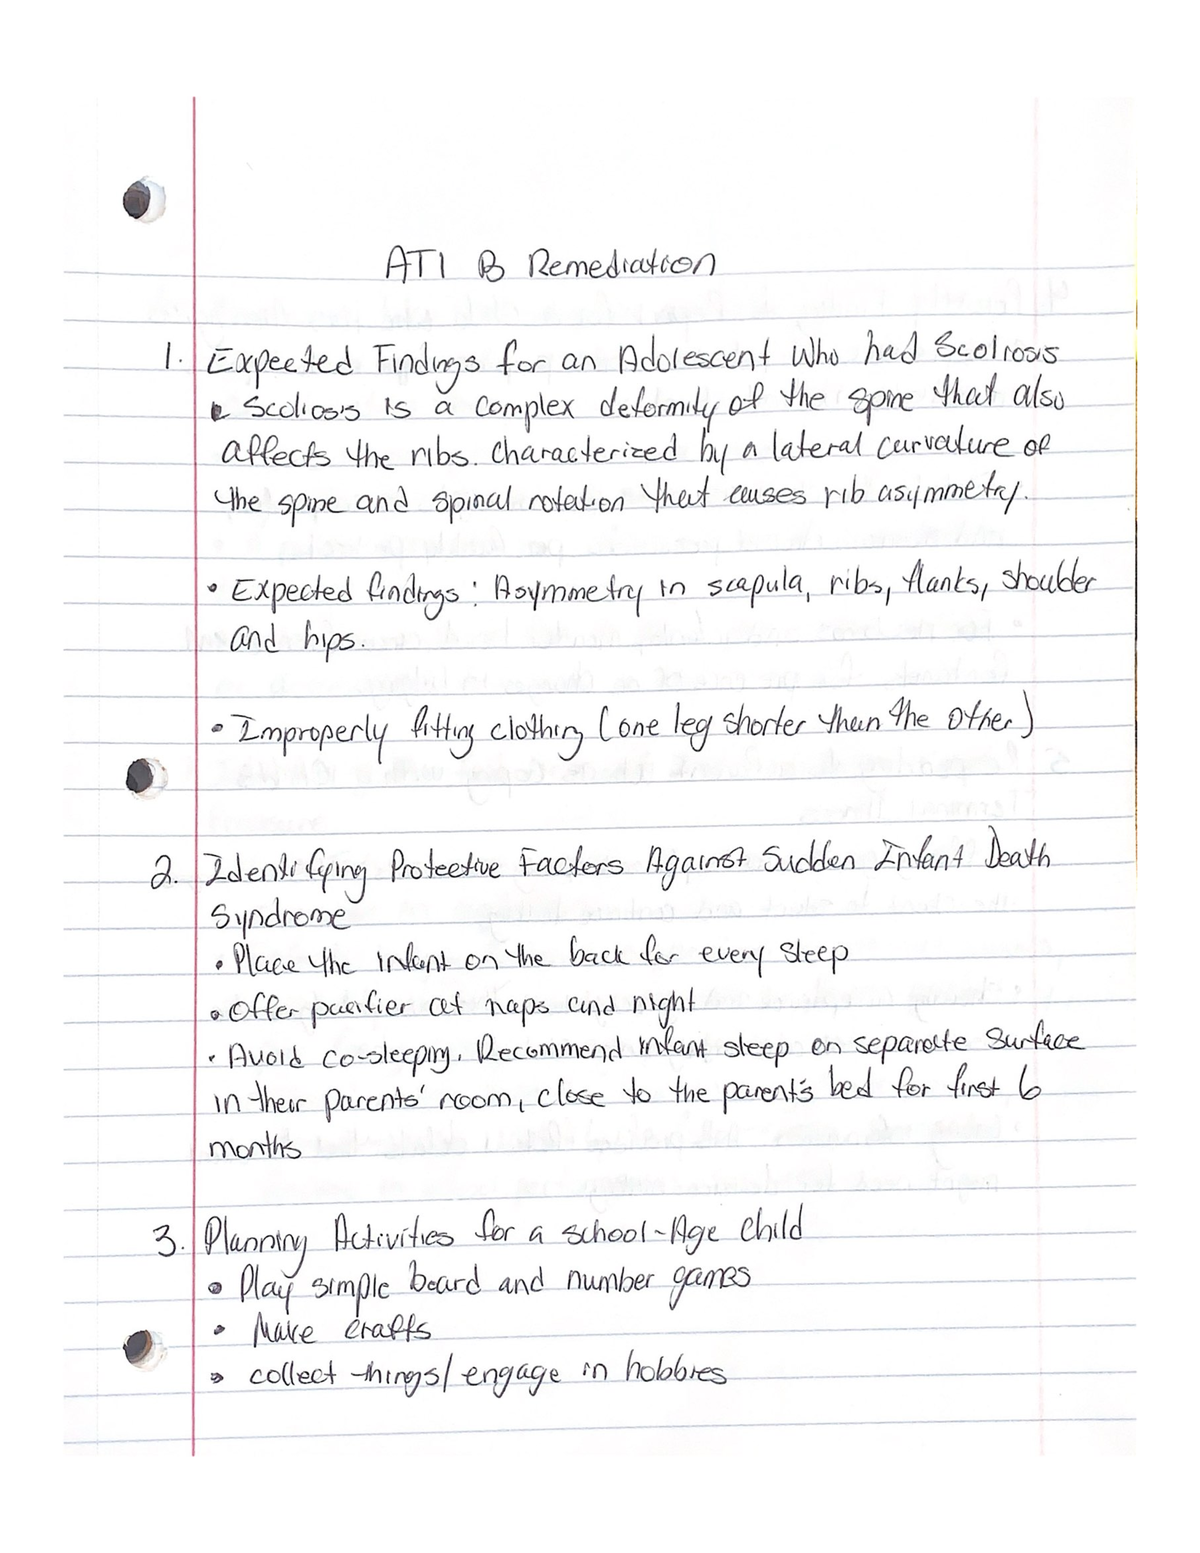 ATI B Remediation
1. Expected Findings for an Adolescent Who had Scoliosis
• Scoliosis is a complex deformity of the spine that also
affects the ribs. Characterized by a lateral curvature of
the spine and spinal rotation that causes rib asymmetry.
• Expected findings: Asymmetry in scapula, ribs, flanks, shoulder
and hips.
• Improperly fitting clothing (one leg shorter than the other)
2. Identifying Protective Factors Against Sudden Infant Death
Syndrome
• Place the infant on the back for every sleep
• Offer pacifier at naps and night
• Avoid co-sleeping. Recommend infant sleep on separate surface
in their parents' room, close to the parent's bed for first 6
months
3. Planning Activities for a school-Age child
• Play simple board and number games
• Make crafts
• collect things/engage in hobbies